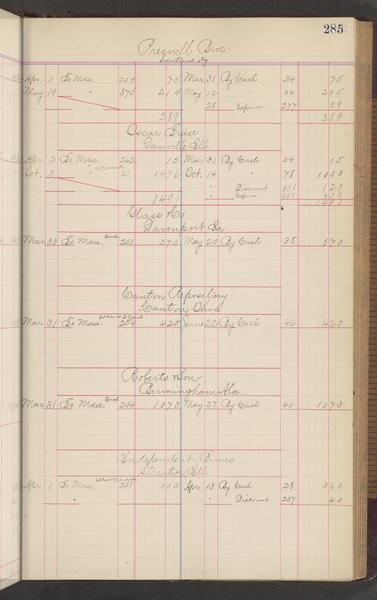 285
Presnell Bros.
Apr 1 To Mdse 259 75 Mar 31 By Cash 24 75
May 19 " 375 214 May 12 " 04 205
28 Expense 277 09
289 289
Oscar
Danville Ill
Apr 2 To Mdse 262 15 Mar 31 By Cash 24 15
Oct. 3 " 21 1476 Oct. 14 " 78 1003
" Discount 351 123
" Expense
1491 1491
Glass & Co
Davenport Ia
Mar 30 To Mdse. 250 570 May 25 By Cash 38 570
Canton Repository
Canton Ohio
Mar 31 To Mdse. 254 425 June 22 By Cash 46 425
Roberts & Son
Birmingham Ala.
Mar 31 To Mdse. 254 1073 May 27 By Cash 40 1073
Independent Times
Streator Ill
Apr 1 To Mdse. 258 400 Apr 13 By Cash 28 360
" " Discount 257 40